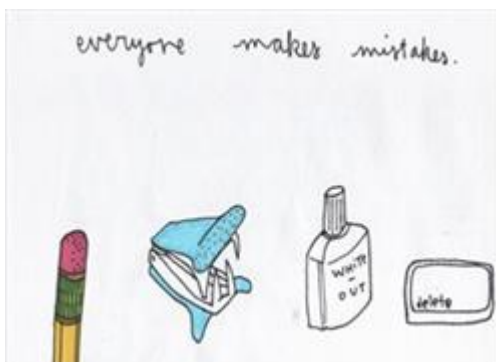 everyone makes mistakes.
WHITE
-
OUT
delete